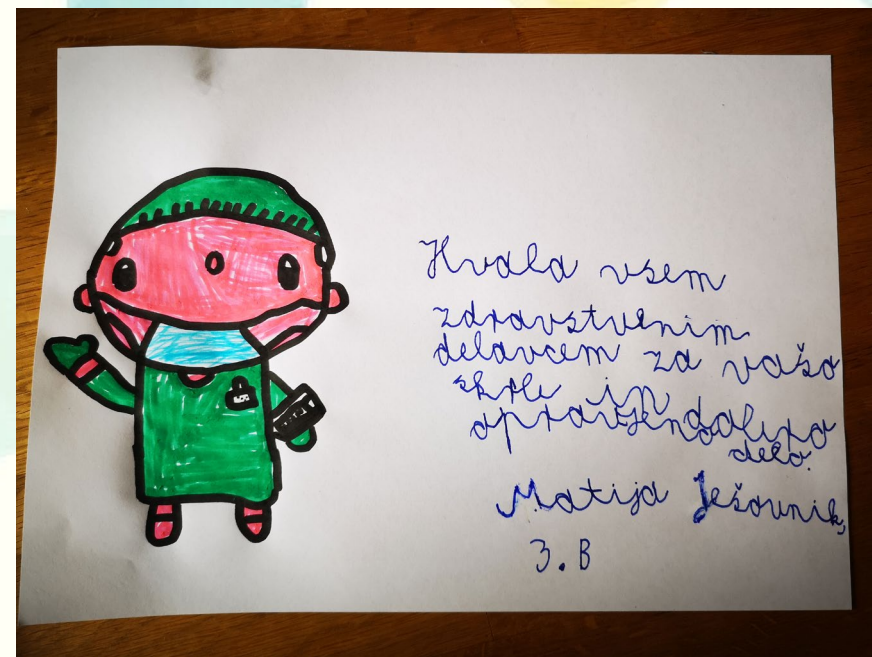 Hvala vsem
zdravstvenim
delavcem za vašo
skrb in
opravljeno dobro
delo.
Matija Ješovnik,
3. B